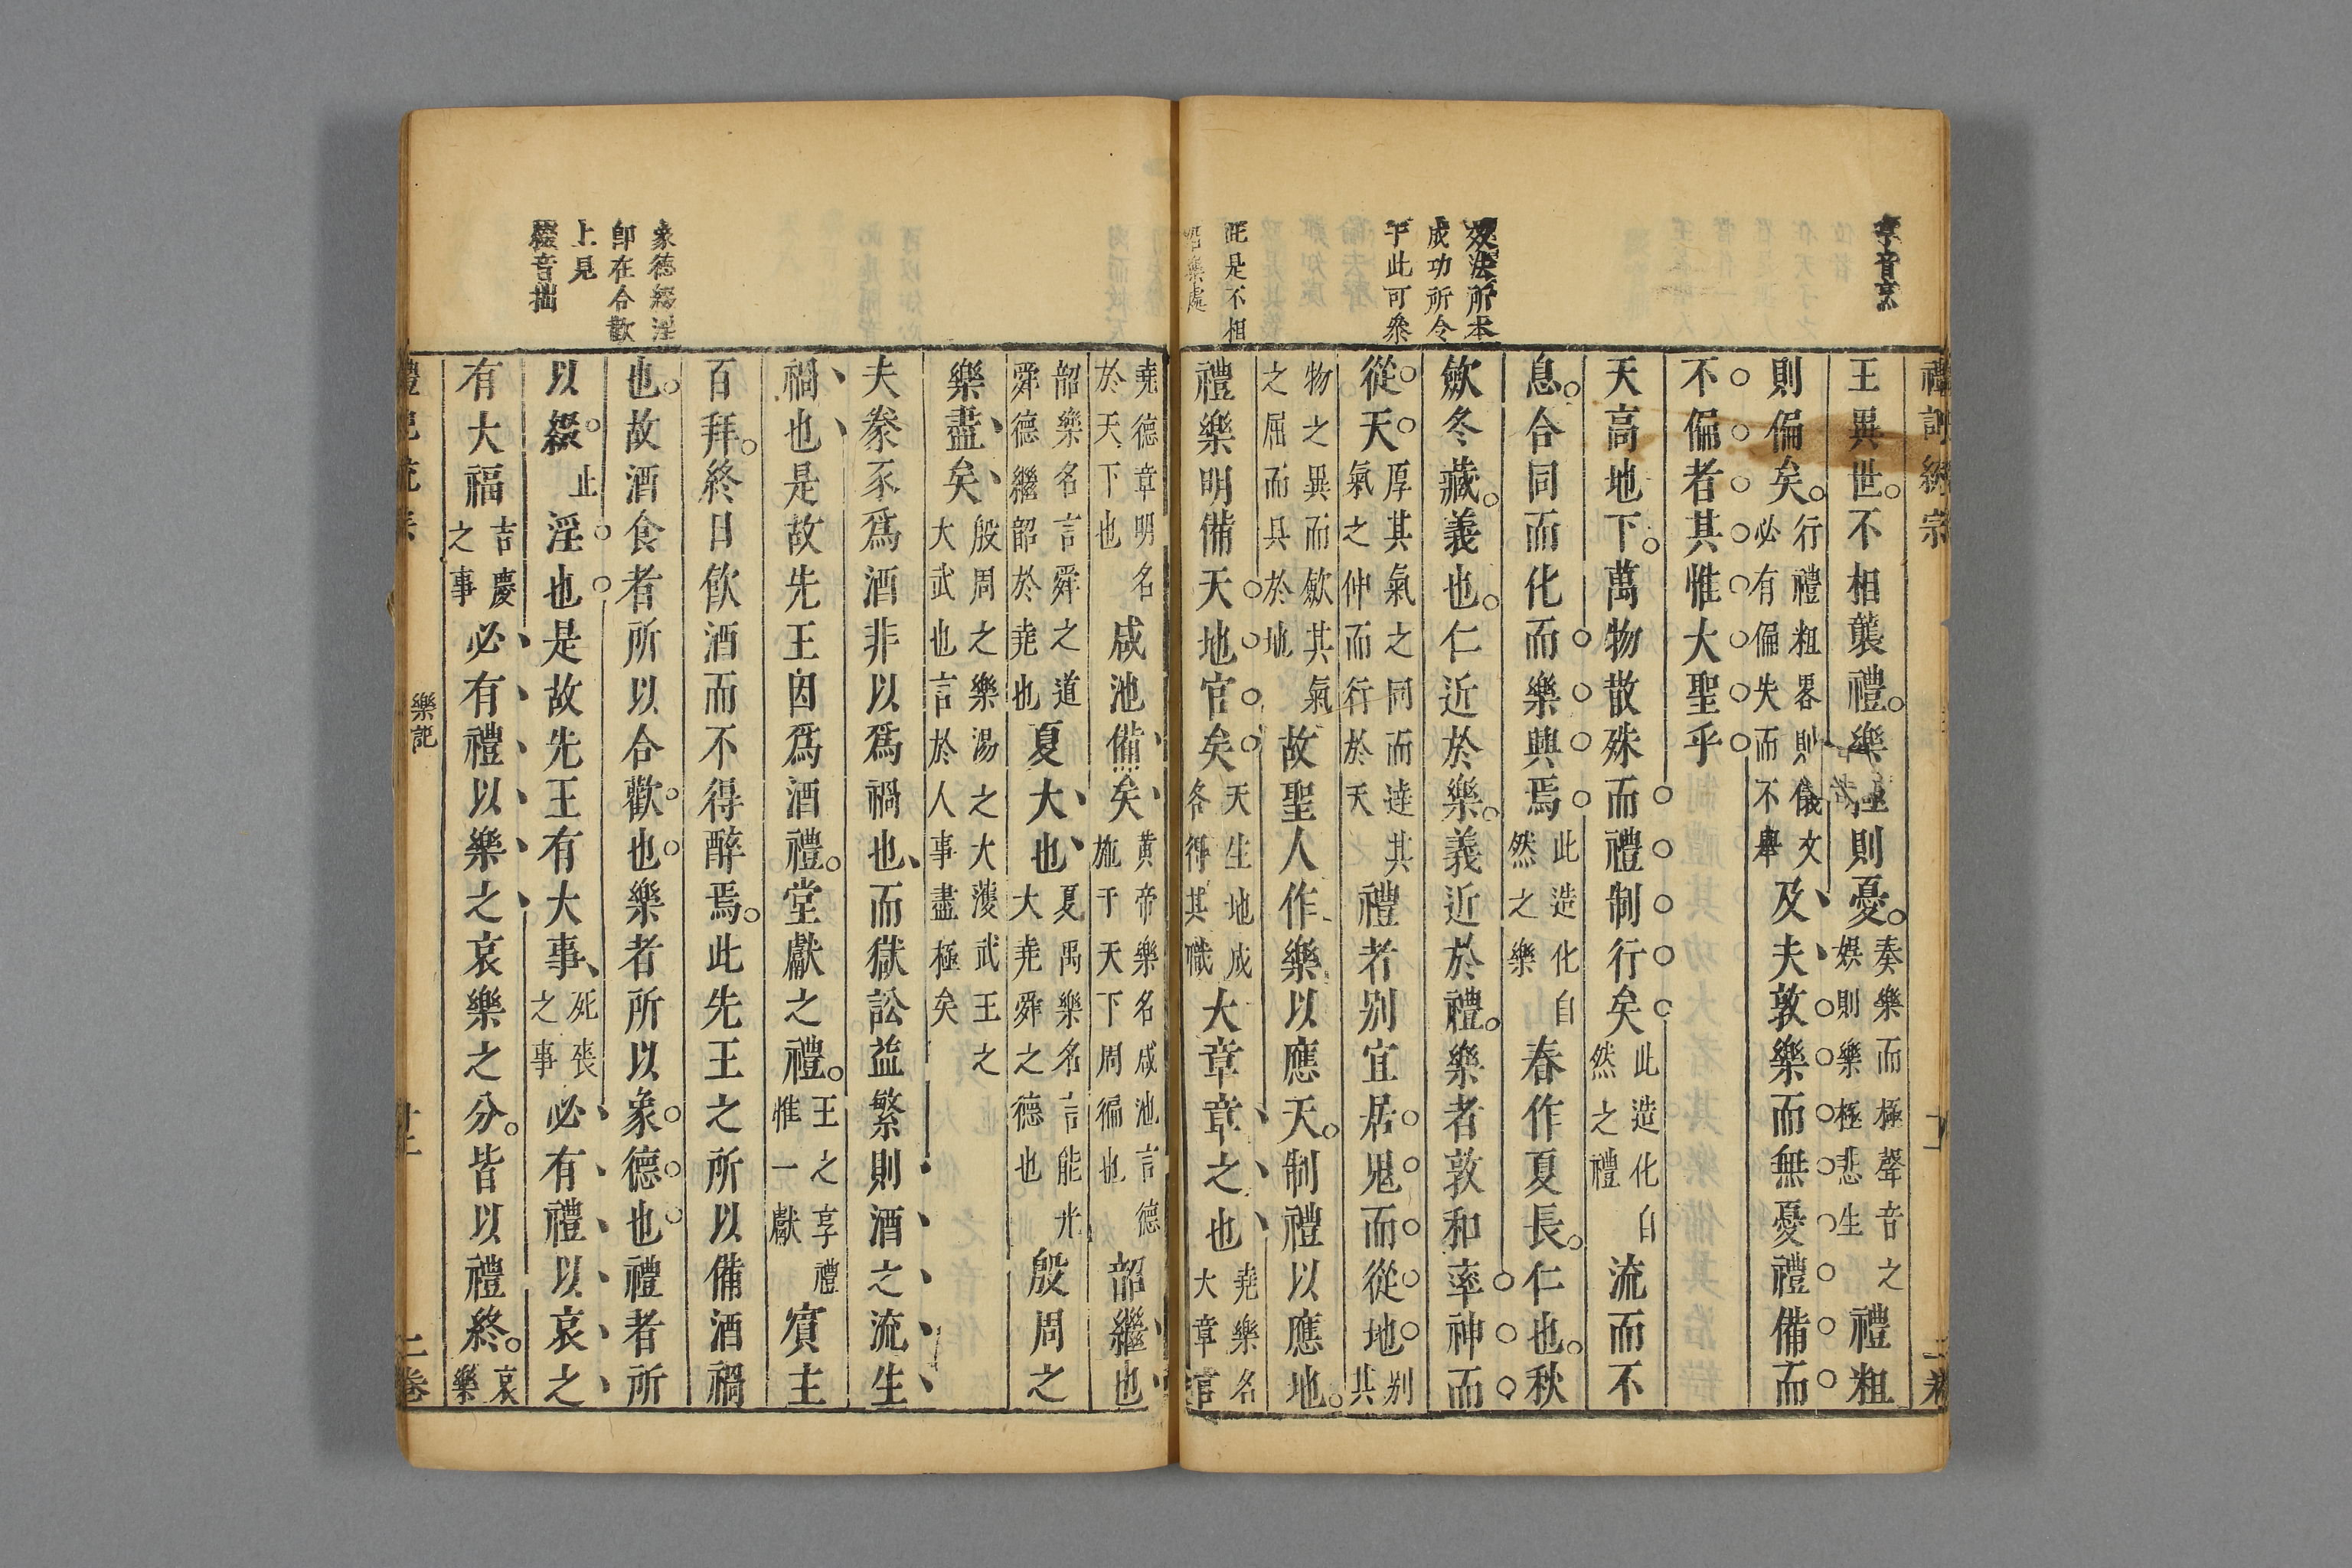 禮記統宗
二卷
享音烹
效法所本
成功所令
乎此可叅
此是不相
沿樂處
王異世不相襲禮樂極則憂奏樂而極聲音之娯則樂極悲生禮粗
則偏矣行禮粗畧則儀文必有偏失而不舉及夫敦樂而無憂禮備而
不偏者其惟大聖乎
天高地下萬物散殊而禮制行矣此造化自然之禮流而不
息合同而化而樂興焉此造化自然之樂春作夏長仁也秋
斂冬藏義也仁近於樂義近於禮樂者敦和率神而
從天厚其氣之同而達其氣之伸而行於天禮者别宜居鬼而從地别其
物之異而歛其氣之屈而具於地故聖人作樂以應天制禮以應地
禮樂明備天地官矣天生地成各得其職大章章之也堯樂名大章言
堯德章明於天下也咸池備矣黃帝樂名咸池言德施于天下周徧也韶繼也
韶樂名言舜之道德繼韶於堯也夏大也夏禹樂名言能光大堯舜之德也殷周之
樂盡矣殷周之樂湯之大濩武王之大武也言於人事盡極矣
夫豢豕爲酒非以爲禍也而獄訟益繁則酒之流生
禍也是故先王因爲酒禮堂獻之禮王之享禮惟一獻賓主
百拜終日飮酒而不得醉焉此先王之所以備酒禍
也故酒食者所以合歡也樂者所以象德也禮者所
以綴止淫也是故先王有大事死喪之事必有禮以哀之
有大福吉慶之事必有禮以樂之哀樂之分皆以禮終哀樂
象德綴淫
卽在合歡
上見
綴音拙
禮記統宗
樂記
二卷